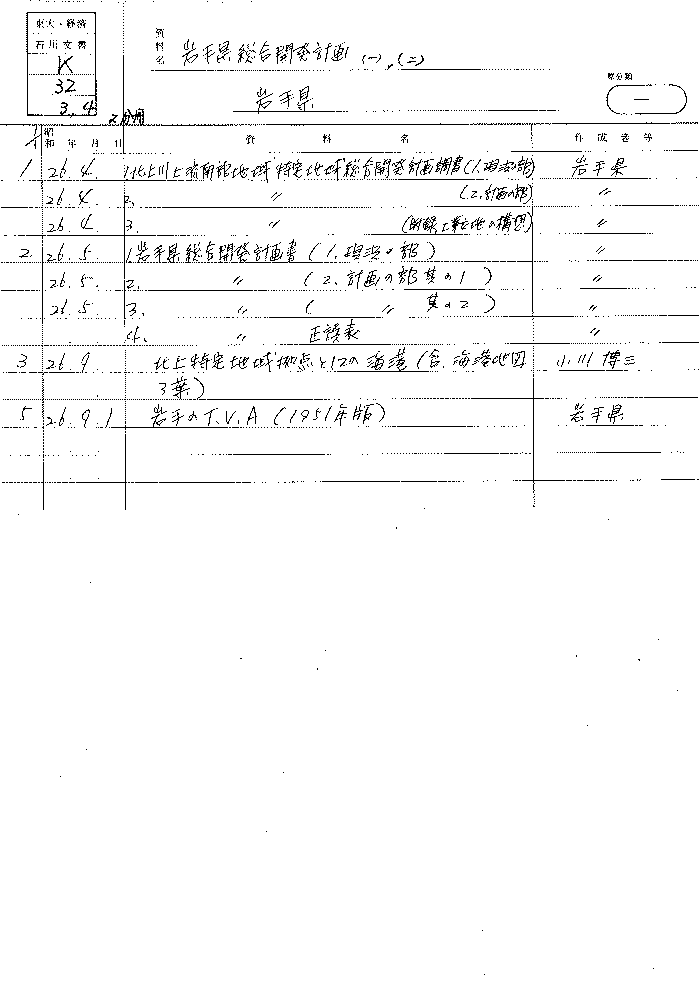 東大・経済
石川文書
K
32
3, 4
2分冊
資料名
岩手県総合開発計画 (一), (二)
岩手県
原分類
一
昭和 年 月 日 資料名 作成者等
1 26. 4. 1. 北上川上流南部地域特定地域総合開発計画調書(1. 現況の部) 岩手県
26. 4 2. 〃 (2. 計画の部) 〃
26. 4 3. 〃 (附録、工業立地の構想) 〃
2 26. 5 1. 岩手県総合開発計画書 (1. 現況の部) 〃
26. 5. 2. 〃 (2. 計画の部 其の1) 〃
26. 5 3. 〃 ( 〃 其の2) 〃
4. 〃 正誤表 〃
3 26. 9 北上特定地域拠点と12の海港 (含. 海港地図 小川博三
3葉)
5 26 9 1 岩手のT.V.A (1951年版) 岩手県